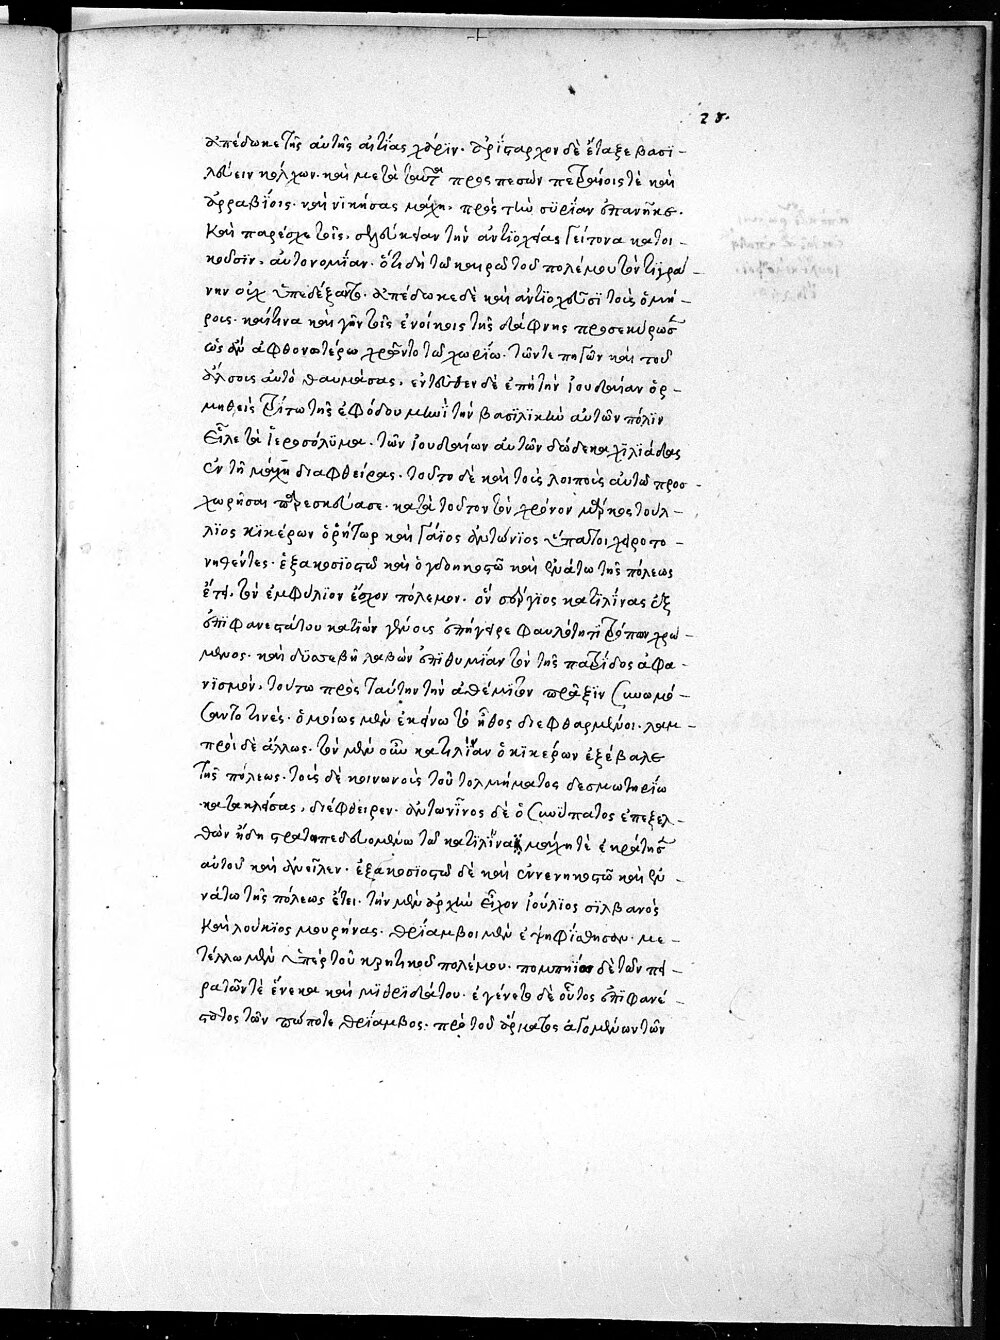 28.
ἀπέδωκε τῆς αὐτῆς αἰτίας χάριν. ἀρίσταρχον δὲ ἔταξε βασι-
λεύειν κόλχων. καὶ μετὰ ταῦτα προσπεσὼν πετραίοις τὲ καὶ
ἀρραβίοις. καὶ νικήσας μάχη, πρὸς τὴν συρίαν ἐπανῆκε.
καὶ παρέσχε τοῖς, σελεύκειαν τὴν ἀντιοχείας γείτονα κατοι-
κοῦσιν, αὐτονομίαν. ὅτι δὴ τῶ καιρῶ τοῦ πολέμου τὸν τιγρά-
νην οὐχ ὑπεδέξαντο. ἀπέδωκε δὲ καὶ ἀντιοχεῦσι τοὺς ὁμή-
ρους. καί τινα καὶ γῆν τοῖς ἐνοίκοις τῆς δάφνης προσεκύρωσεν
ὡς ἂν ἀφθονωτέρω χρῶντο τῶ χωρίω. τῶν τε πηγῶν καὶ τοῦ
ἄλσους αὐτὸ θαυμάσας, ἐντεῦθεν δὲ ἐπὶ τὴν ἰουδαίαν ὁρ-
μηθεὶς τρίτω τῆς ἐφόδου μηνὶ τὴν βασιλικὴν αὐτῶν πόλιν
εἷλε τὰ ἱεροσόλυμα. τῶν ἰουδαίων αὐτῶν δώδεκα χιλιάδας
ἐν τῆ μάχη διαφθείρας. τοῦτο δὲ καὶ τοὺς λοιποὺς αὐτῶ προσ-
χωρῆσαι παρεσκεύασε. κατὰ τοῦτον τὸν χρόνον μάρκος τούλ-
λιος κικέρων ὁ ῥήτωρ καὶ γάϊος ἀντώνιος ὕπατοι χειροτο-
νηθέντες. ἑξακοσιοστῶ καὶ ὀγδοηκοστῶ καὶ ἐνάτω τῆς πόλεως
ἔτει, τὸν ἐμφύλιον ἔσχον πόλεμον. ὃν σέργιος κατιλίνας ἐξ
ἐπιφανεστάτου κατιὼν γένους ἐπήγειρε φαυλότητι τρόπων χρώ-
μενος. καὶ δυσσεβῆ λαβὼν ἐπιθυμίαν τὸν τῆς πατρίδος ἀφα-
νισμόν, τούτω πρὸς ταύτην τὴν ἀθέμιτον πρᾶξιν συνωμό-
σαντο τινές. ὁμοίως μὲν ἐκείνω τὸ ἦθος διεφθαρμένοι. λαμ-
προὶ δὲ ἄλλως. τὸν μὲν οὖν κατιλίναν ὁ κικέρων ἐξέβαλε
τῆς πόλεως. τοὺς δὲ κοινωνοὺς τοῦ τολμήματος δεσμωτηρίω
κατακλείσας, διέφθειρεν. ἀντωνῖνος δὲ ὁ συνύπατος ἐπεξελ-
θὼν ἤδη στρατοπεδευομένω τῶ κατιλίνα μάχη τὲ ἐκράτησεν
αὐτοῦ καὶ ἀνεῖλεν. ἑξακοσιοστῶ δὲ καὶ ἐννενηκοστῶ καὶ ἐν-
νάτω τῆς πόλεως ἔτει. τὴν μὲν ἀρχὴν εἶχον ἰούλιος σιλβανὸς
καὶ λούκιος μουρήνας. θρίαμβοι μὲν ἐψηφίσθησαν. με-
τέλλω μὲν ὑπὲρ τοῦ κρητικοῦ πολέμου. πομπηίω δὲ τῶν πει-
ρατῶν τὲ ἕνεκα καὶ μιθριδάτου. ἐγένετο δὲ οὗτος ἐπιφανέ-
στατος τῶν πώποτε θρίαμβος. πρὸ τοῦ ἅρματος ἀγομένων τῶν